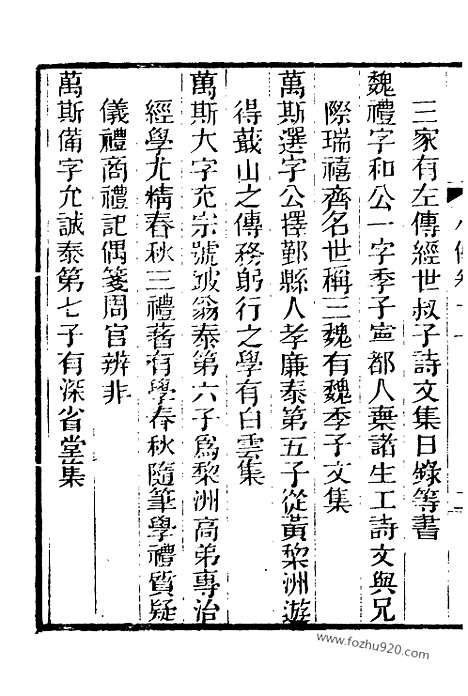 三家有左傳經世叔子詩文集日錄等書
魏禮字和公一字季子寧都人棄諸生工詩文與兄
際瑞禧齊名世稱三魏有魏季子文集
萬斯選字公擇鄞縣人孝廉泰第五子從黃棃洲遊
得蕺山之傳務躬行之學有白雲集
萬斯大字充宗號跛翁泰第六子爲棃洲高弟專治
經學尤精春秋三禮著有學春秋隨筆學禮質疑
儀禮商禮記偶箋周官辨非
萬斯備字允誠泰第七子有深省堂集
www.fozhu920.com